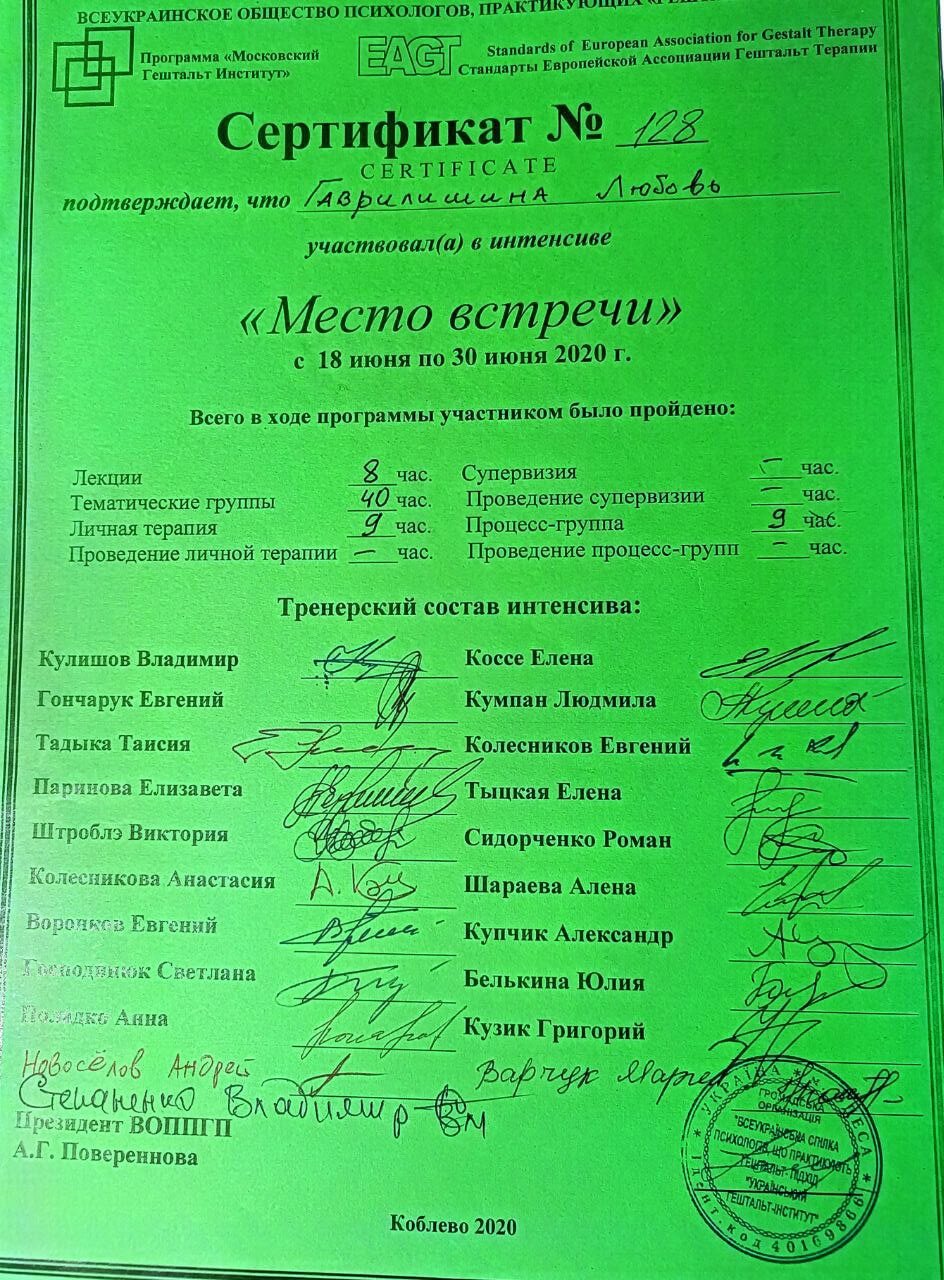 ВСЕУКРАИНСКОЕ ОБЩЕСТВО ПСИХОЛОГОВ, ПРАКТИКУЮЩИХ
Программа «Московский
Гештальт Институт»
EAGT
Standards of European Association for Gestalt Therapy
Стандарты Европейской Ассоциации Гештальт Терапии
Сертификат № 128
CERTIFICATE
подтверждает, что Гаврилишина Любовь
участвовал(а) в интенсиве
«Место встречи»
с 18 июня по 30 июня 2020 г.
Всего в ходе программы участником было пройдено:
Лекции 8 час. Супервизия — час.
Тематические группы 40 час. Проведение супервизии — час.
Личная терапия 9 час. Процесс-группа 9 час.
Проведение личной терапии — час. Проведение процесс-групп — час.
Тренерский состав интенсива:
Кулишов Владимир Коссе Елена
Гончарук Евгений Кумпан Людмила
Тадыка Таисия Колесников Евгений
Паринова Елизавета Тыцкая Елена
Штроблэ Виктория Сидорченко Роман
Колесникова Анастасия Шараева Алена
Воронков Евгений Купчик Александр
Господинюк Светлана Белькина Юлия
Анна Кузик Григорий
Новосёлов Андрей Варчук
Степаненко Владимир
Президент ВОППГП
А.Г. Повереннова
УКРАЇНА * М. ОДЕСА * Ідент. код 40169866
ГРОМАДСЬКА
ОРГАНІЗАЦІЯ
"ВСЕУКРАЇНСЬКА СПІЛКА
ПСИХОЛОГІВ, ЩО ПРАКТИКУЮТЬ
ГЕШТАЛЬТ-ПІДХІД
"УКРАЇНСЬКИЙ
ГЕШТАЛЬТ-ІНСТИТУТ"
Коблево 2020